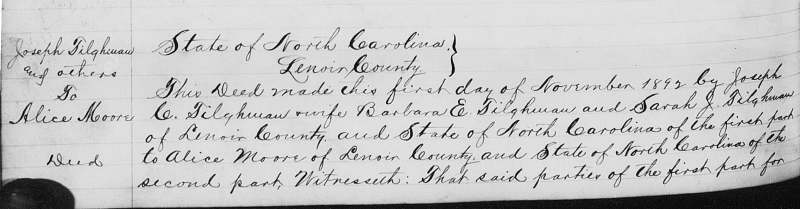 Joseph Tilghman
and others
To
Alice Moore
Deed
State of North Carolina,
Lenoir County
This Deed made this first day of November 1892 by Joseph
C. Tilghman wife Barbara E. Tilghman and Sarah J. Tilghman
of Lenoir County and State of North Carolina of the first part
to Alice Moore of Lenoir County, and State of North Carolina of the
second part, Witnesseth: That said parties of the first part for